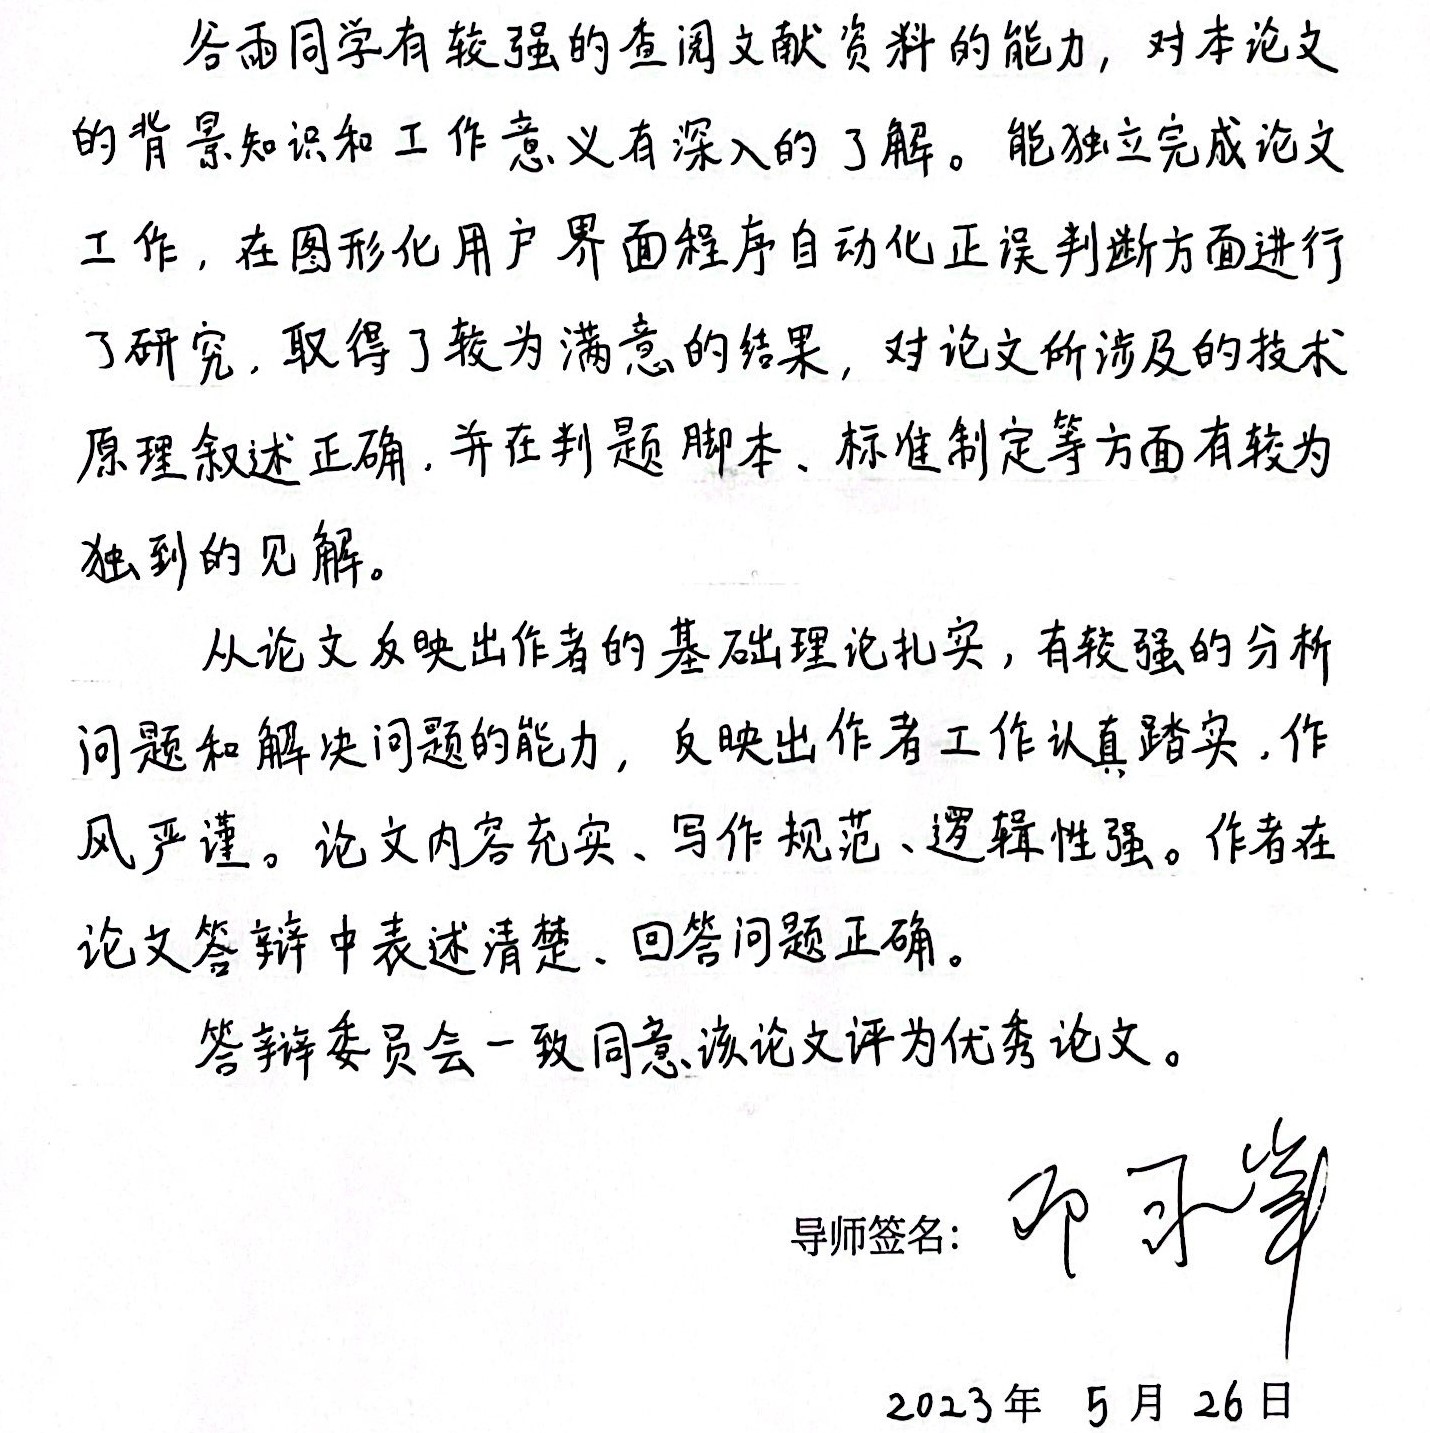 谷雨同学有较强的查阅文献资料的能力，对本论文
的背景知识和工作意义有深入的了解。能独立完成论文
工作，在图形化用户界面程序自动化正误判断方面进行
了研究，取得了较为满意的结果，对论文所涉及的技术
原理叙述正确，并在判题脚本、标准制定等方面有较为
独到的见解。
从论文反映出作者的基础理论扎实，有较强的分析
问题和解决问题的能力，反映出作者工作认真踏实，作
风严谨。论文内容充实、写作规范、逻辑性强。作者在
论文答辩中表述清楚、回答问题正确。
答辩委员会一致同意该论文评为优秀论文。
导师签名：
2023年 5月 26日